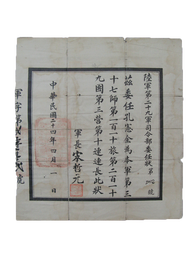 陸軍第二十九軍司令部委任狀
茲委任孔憲金為本軍第三
十七師第一百一十旅第二百一十
九團第三營第十連連長此狀
軍長宋哲元
中華民國二十四年四月一日